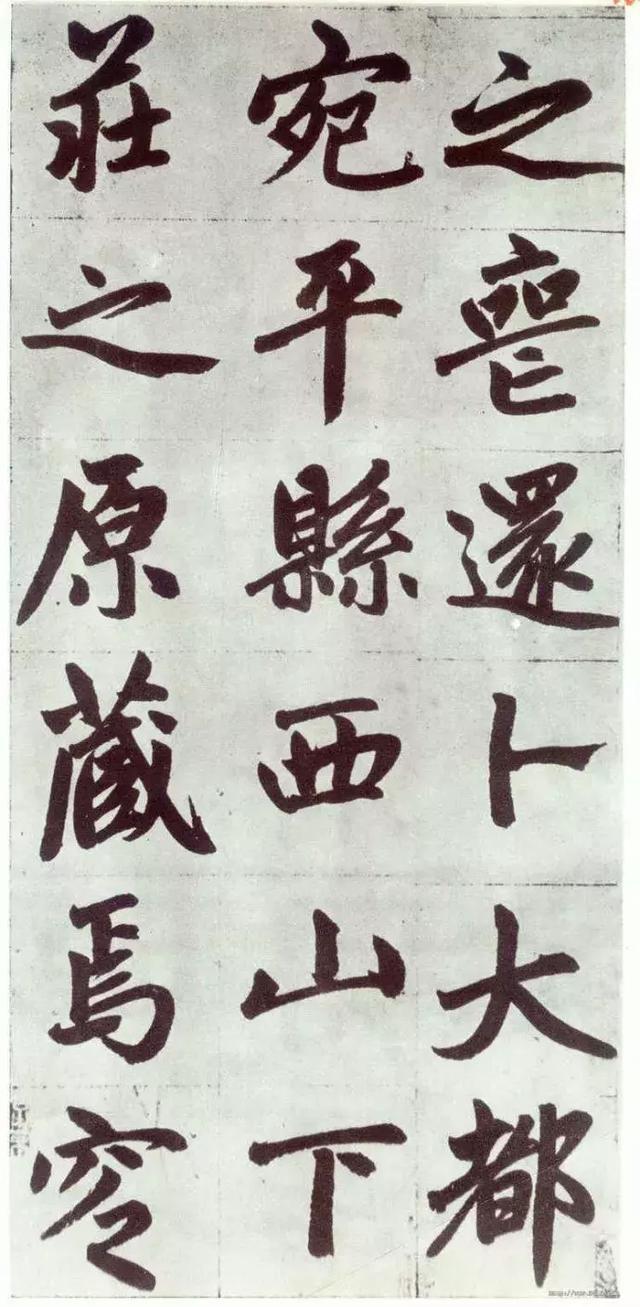 之喪還卜大都
宛平縣西山下
莊之原藏焉窆